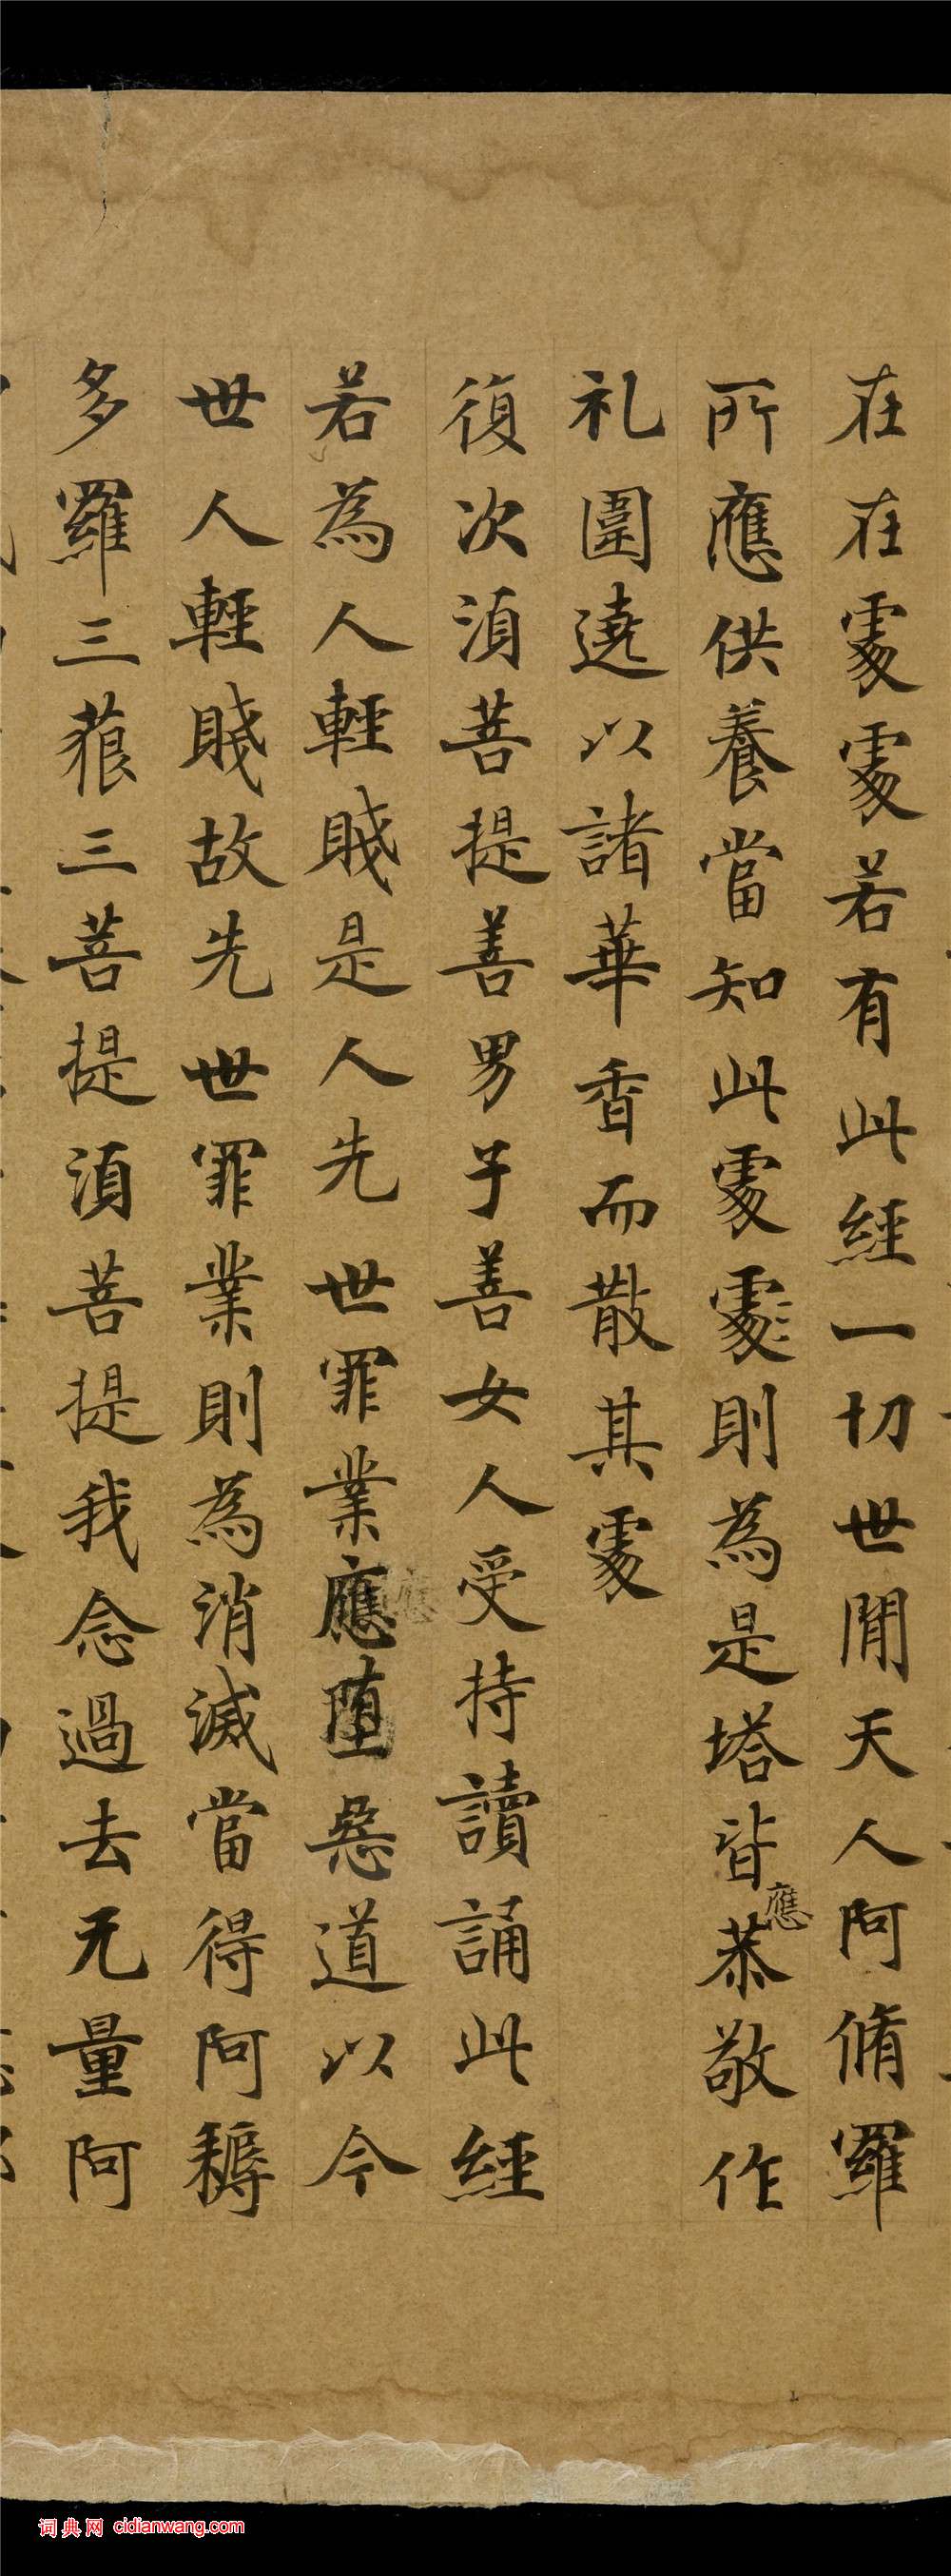 在在處處若有此經一切世閒天人阿脩羅
所應供養當知此處處則為是塔皆應恭敬作
礼圍遶以諸華香而散其處
復次須菩提善男子善女人受持讀誦此經
若為人輕賤是人先世罪業應堕惡道以今
世人輕賤故先世罪業則為消滅當得阿耨
多羅三藐三菩提須菩提我念過去无量阿
词典网 cidianwang.com